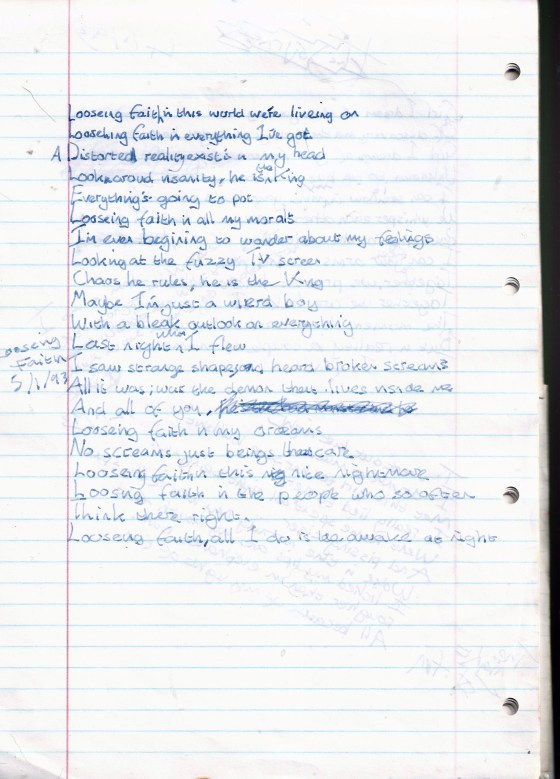 Looseing faith in this world we're liveing on
Looseing faith in everything I've got.
A Distorted reality exist's in my head
Look around insanity, he is the King
Everything's going to pot
Looseing faith in all my morals
I'm even begining to wonder about my feelings
Looking at the fuzzy TV screen
Chaos he rules, he is the King
Maybe I'm just a wierd boy
With a bleak outlook on everything
Last night when I flew
Looseing
Faith
5/1/93
I saw strange shapes and heard broken screams
All it was, was the demon that lives inside me
And all of you,
Looseing faith in my dreams
No screams just beings that care
Looseing faith in this nice nightmare
Loosing faith in the people who so often
Think there right.
Looseing faith, all I do is lie awake at night